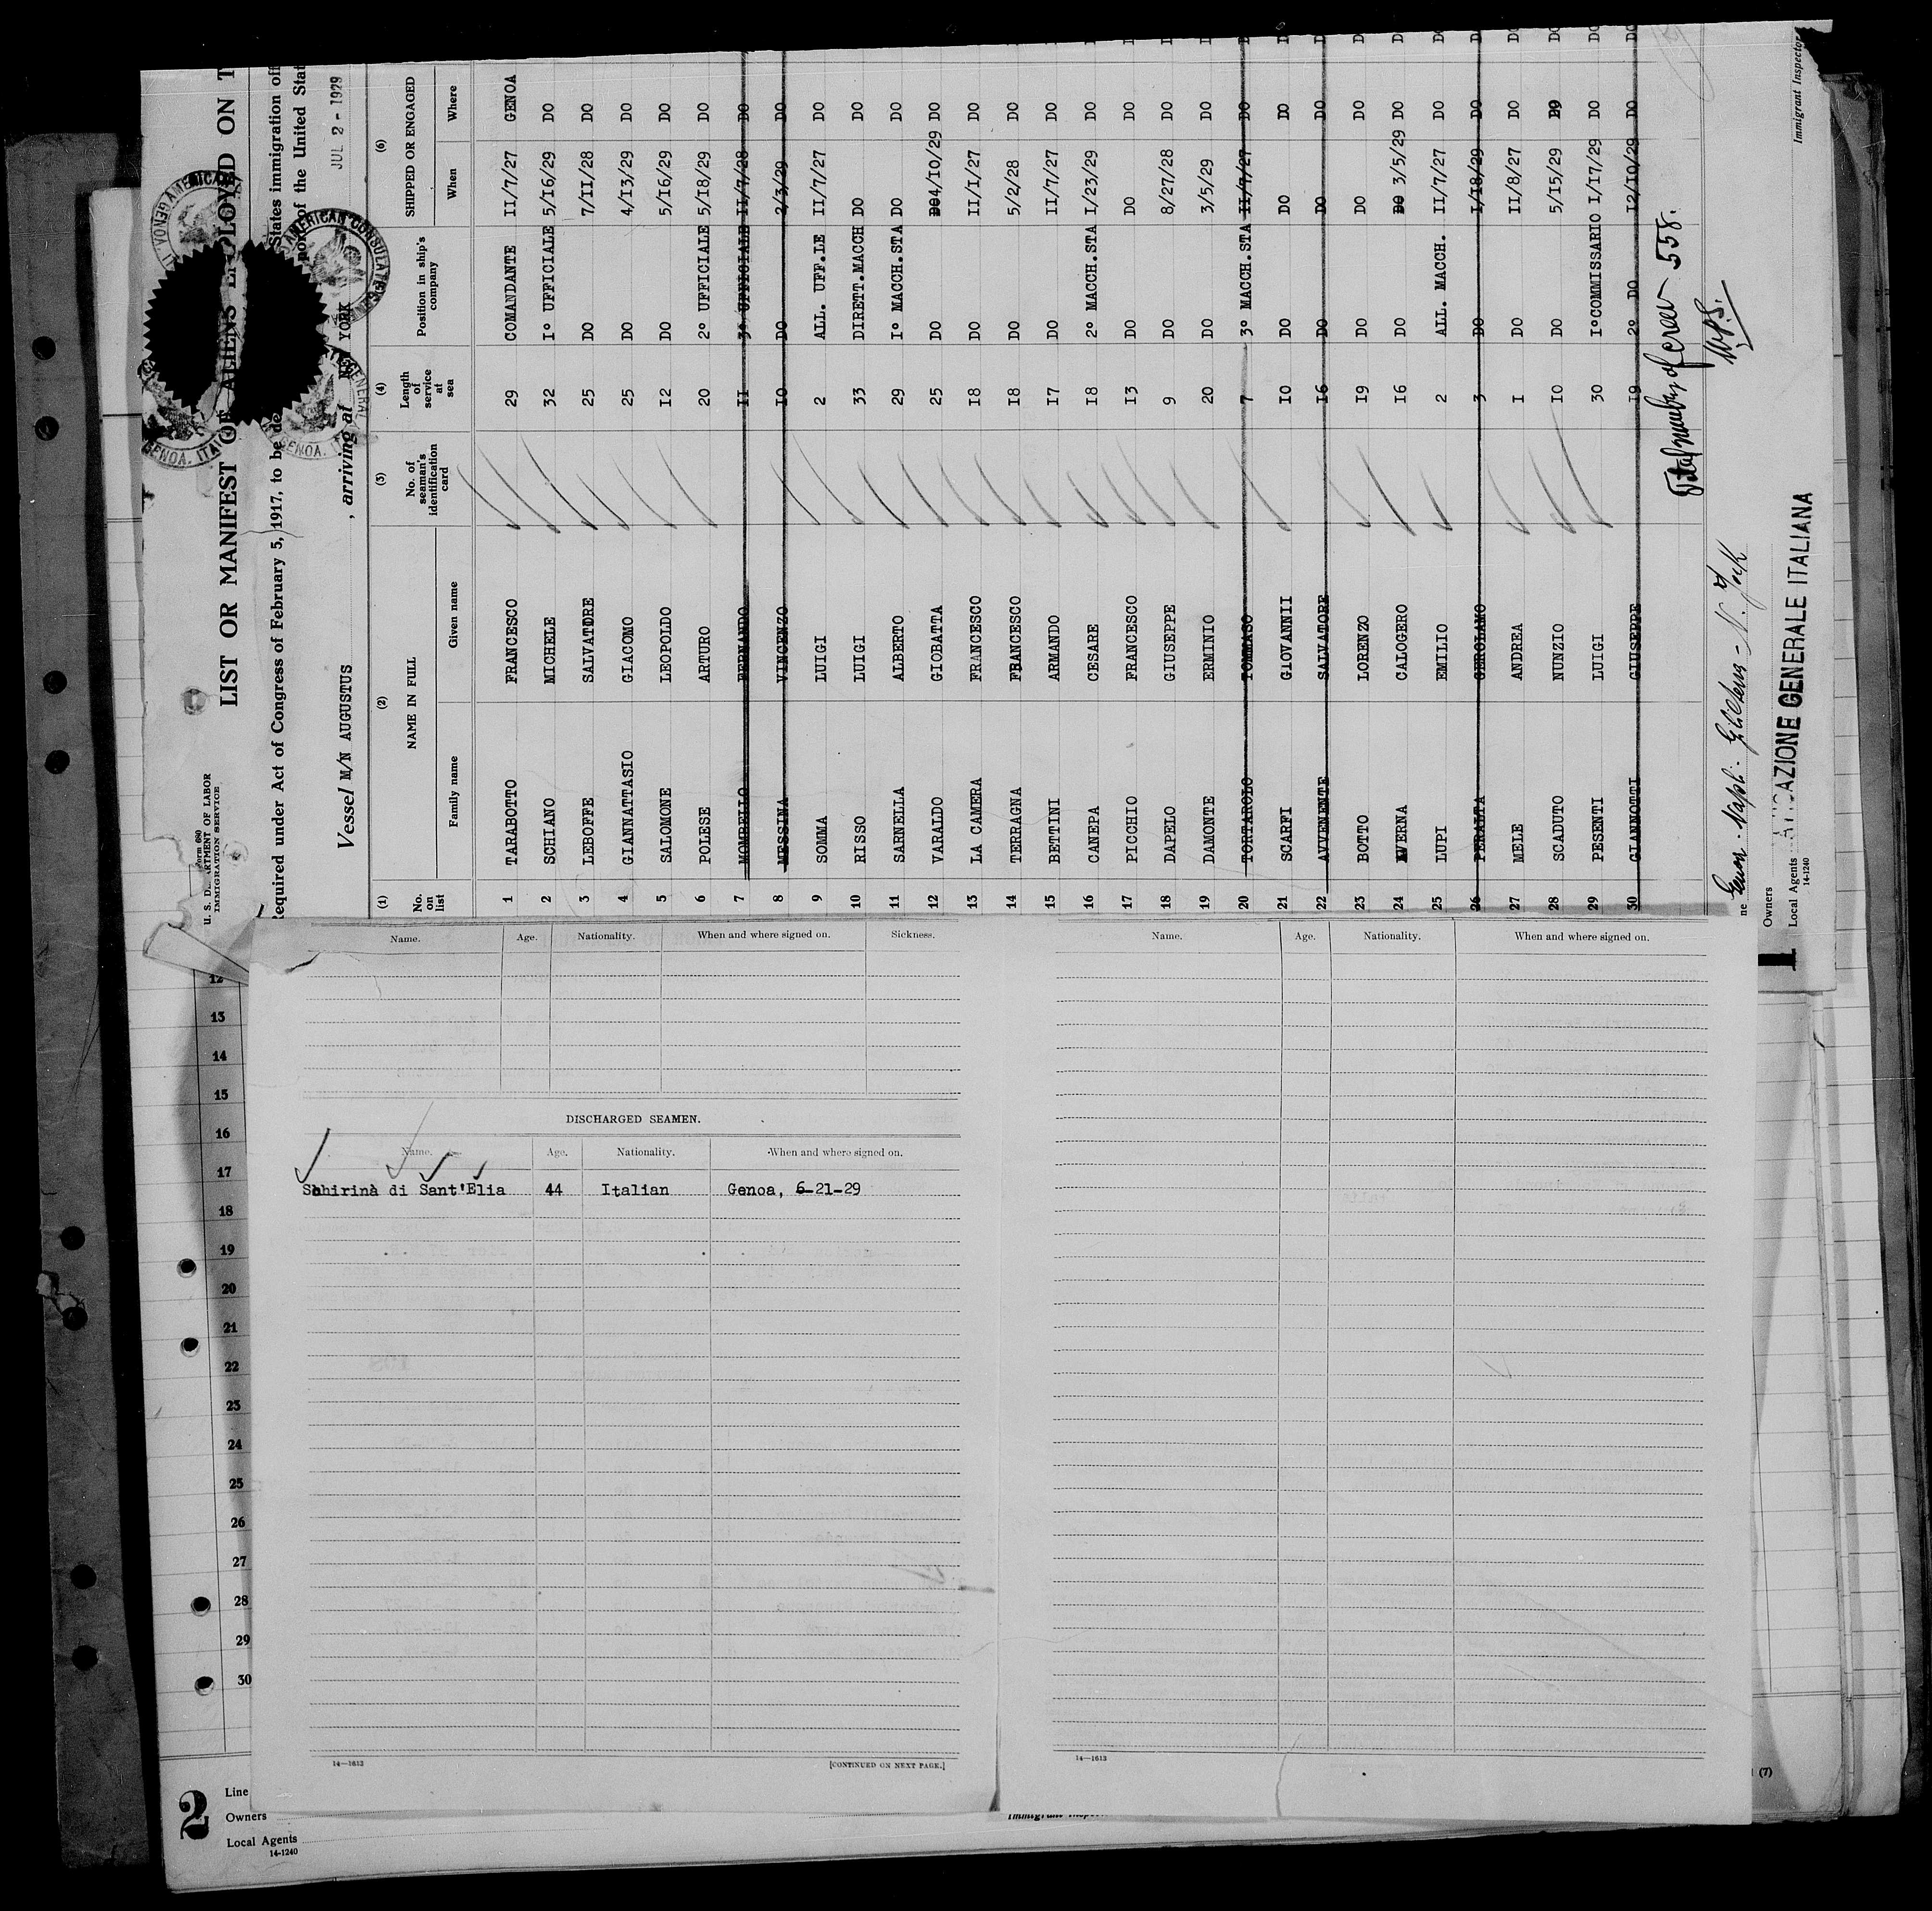 Form 680
U. S. DEPARTMENT OF LABOR
IMMIGRATION SERVICE
LIST OR MANIFEST OF ALIENS EMPLOYED ON T
Required under Act of Congress of February 5, 1917, to be de
States immigration off
port of the United Stat
Vessel M/N AUGUSTUS , arriving at NEW YORK JUL 2 - 1929
AMERICAN CONSULATE GENERAL
GENOA, ITALY
(1) (2) (3) (4) (6)
No. on list NAME IN FULL No. of seaman's identification card Length of service at sea Position in ship's company SHIPPED OR ENGAGED
Family name Given name When Where
1 TARABOTTO FRANCESCO 29 COMANDANTE II/7/27 GENOA
2 SCHIANO MICHELE 32 I° UFFICIALE 5/I6/29 DO
3 LEBOFFE SALVATORE 25 DO 7/II/28 DO
4 GIANNATTASIO GIACOMO 25 DO 4/I3/29 DO
5 SALOMONE LEOPOLDO I2 DO 5/I6/29 DO
6 POLESE ARTURO 20 2° UFFICIALE 5/I8/29 DO
7 MOMBELLO FERNANDO II 3° UFFICIALE II/7/28 DO
8 MESSINA VINCENZO IO DO 2/3/29 DO
9 SOMMA LUIGI 2 ALL. UFF.LE II/7/27 DO
10 RISSO LUIGI 33 DIRETT.MACCH DO DO
11 SARNELLA ALBERTO 29 I° MACCH.STA DO DO
12 VARALDO GIOBATTA 25 DO DO4/IO/29 DO
13 LA CAMERA FRANCESCO I8 DO II/I/27 DO
14 TERRAGNA FRANCESCO I8 DO 5/2/28 DO
15 BETTINI ARMANDO I7 DO II/7/27 DO
16 CANEPA CESARE I8 2° MACCH.STA I/23/29 DO
17 PICCHIO FRANCESCO I3 DO DO DO
18 DAPELO GIUSEPPE 9 DO 8/27/28 DO
19 DAMONTE ERMINIO 20 DO 3/5/29 DO
20 TORTAROLO TOMMASO 7 3° MACCH.STA II/7/27 DO
21 SCARFI GIOVANNII IO DO DO DO
22 AVVENENTE SALVATORE I6 DO DO DO
23 BOTTO LORENZO I9 DO DO DO
24 AVERNA CALOGERO I6 DO DO 3/5/29 DO
25 LUPI EMILIO 2 ALL. MACCH. II/7/27 DO
26 PERALTA GEROLAMO 3 DO I/I8/29 DO
27 MELE ANDREA I DO II/8/27 DO
28 SCADUTO NUNZIO IO DO 5/I5/29 DO
29 PESENTI LUIGI 30 I°COMMISSARIO I/I7/29 DO
30 GIANNOTTI GIUSEPPE I9 2° DO I2/IO/29 DO
Total number of crew 558.
Genoa - Napoli - Gibilterra - N. York
Owners
Local Agents
14-1240
NAVIGAZIONE GENERALE ITALIANA
Immigrant Inspector
1
Name. Age. Nationality. When and where signed on. Sickness.
DISCHARGED SEAMEN.
Name. Age. Nationality. When and where signed on.
Schirinà di Sant'Elia 44 Italian Genoa, 6-21-29
14—1613 [CONTINUED ON NEXT PAGE.]
Name. Age. Nationality. When and where signed on.
14—1613
12
13
14
15
16
17
18
19
20
21
22
23
24
25
26
27
28
29
30
2
Line
Owners
Local Agents
14-1240
Immigrant Inspector
(7)